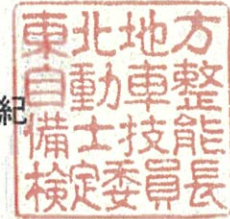 東北地方
自動車整
備士技能
検定委員長
紀